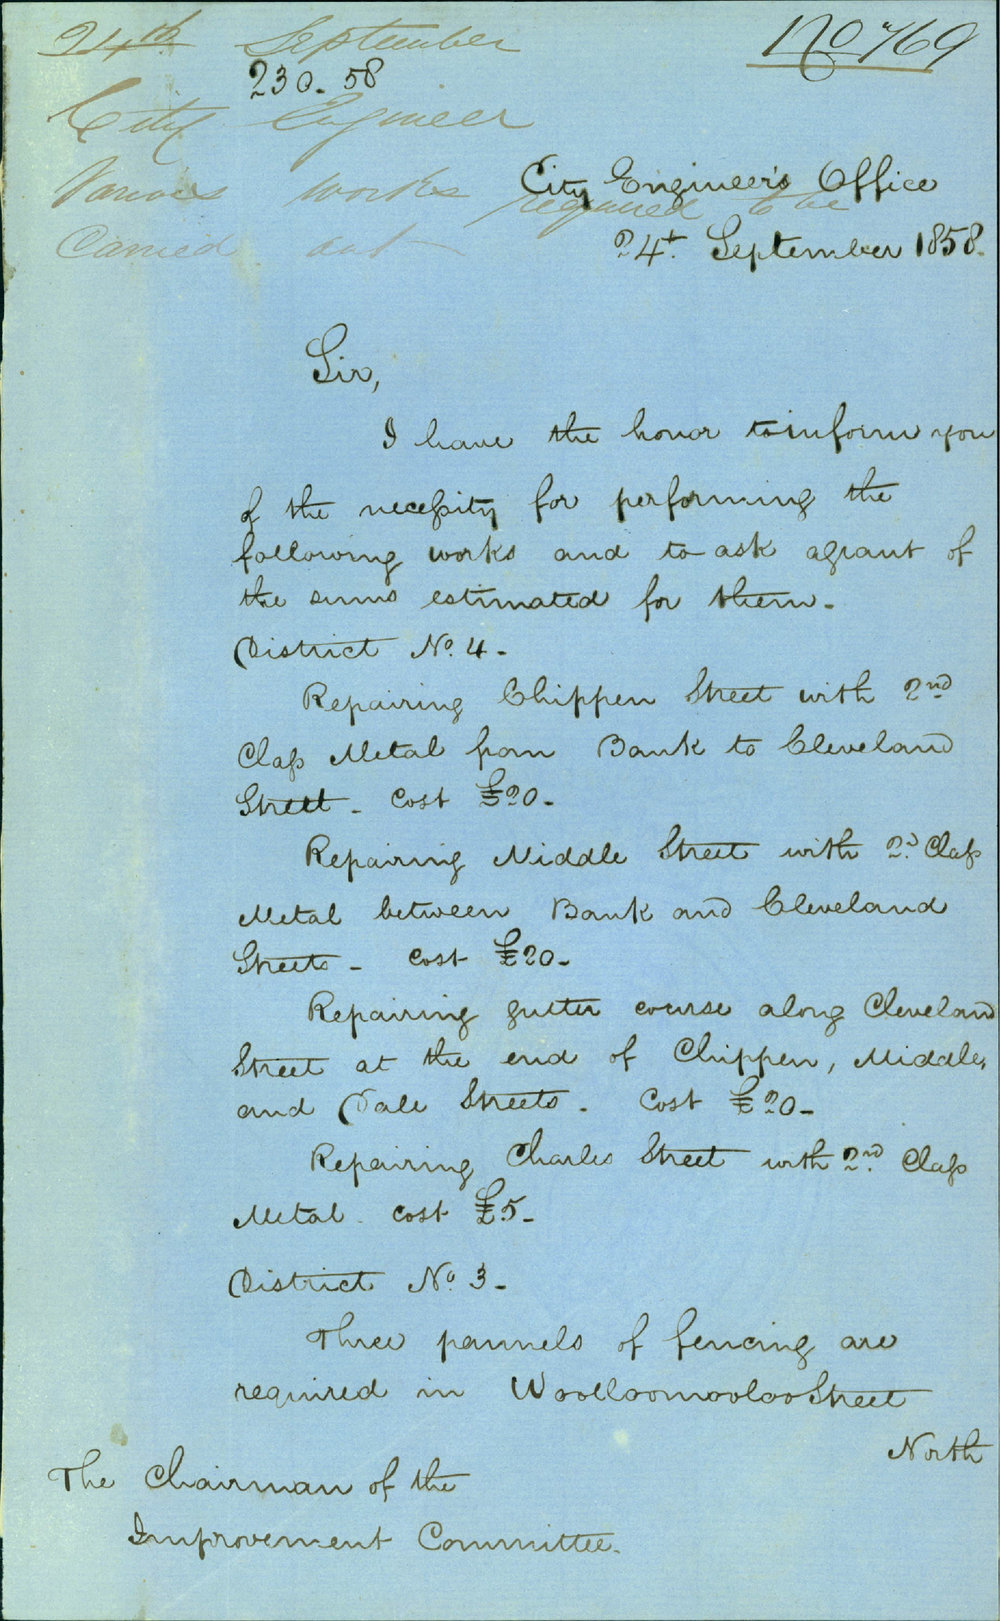 24th September
No 769
230. 58
City Engineer
Various works required to be
Carried out
City Engineer's Office
24t. September 1858.
Sir,
I have the honor to inform you
of the necessity for performing the
following works and to ask a grant of
the sums estimated for them.
District No. 4.
Repairing Chippen Street with 2nd
Class Metal from Bank to Cleveland
Street. Cost £20.
Repairing Middle Street with 2d. Class
Metal between Bank and Cleveland
Streets. Cost £20.
Repairing gutter course along Cleveland
Street at the end of Chippen, Middle,
and Dale Streets. Cost £20.
Repairing Charles Street with 2nd. Class
Metal. cost £5.
District No. 3.
Three pannels of fencing are
required in Woolloomooloo Street
North
The Chairman of the
Improvement Committee.